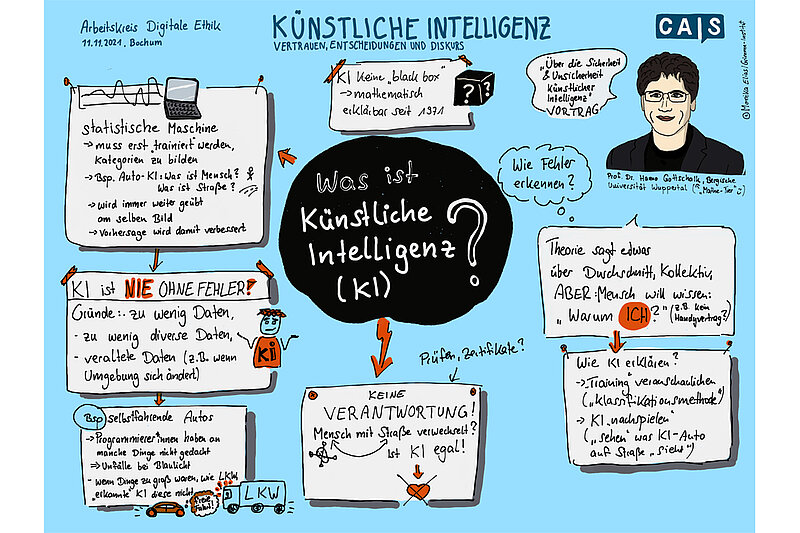 Arbeitskreis Digitale Ethik
11.11.2021, Bochum
KÜNSTLICHE INTELLIGENZ
VERTRAUEN, ENTSCHEIDUNGEN UND DISKURS
CAIS
statistische Maschine
→ muss erst "trainiert" werden,
Kategorien zu bilden
→ Bsp. Auto-KI: Was ist Mensch?
Was ist Straße?
→ wird immer weiter geübt
am selben Bild
→ Vorhersage wird damit verbessert
KI Keine "black box"
→ mathematisch
erklärbar seit 1971
? ?
"Über die Sicherheit
& Unsicherheit
Künstlicher
Intelligenz"
VORTRAG
© Mareika Elias/Grimme-Institut
Prof. Dr. Hanno Gottschalk, Bergische
Universität Wuppertal ("Mathe-Tier")
Was ist
Künstliche
Intelligenz
(KI)
?
Wie Fehler
erkennen?
Theorie sagt etwas
über Durchschnitt, Kollektiv,
ABER: Mensch will wissen:
"Warum ICH?" (z.B. kein
Handyvertrag?)
Wie KI erklären?
→ "Training" veranschaulichen
("Klassifikationsmethode")
→ KI "nachspielen"
("sehen" was KI-Auto
auf Straße "sieht")
KI ist NIE OHNE FEHLER!
Gründe: - zu wenig Daten,
- zu wenig diverse Daten,
- veraltete Daten (z.B. wenn
Umgebung sich ändert)
KI
Bsp selbstfahrende Autos
→ Programmierer*innen haben an
manche Dinge nicht gedacht
→ Unfälle bei Blaulicht
- wenn Dinge zu groß waren, wie LKW
"erkannte" KI diese nicht
Freie
Fahrt!
LKW
Prüfen, Zertifikate?
KEINE
VERANTWORTUNG!
Mensch mit Straße verwechselt?
Ist KI egal!